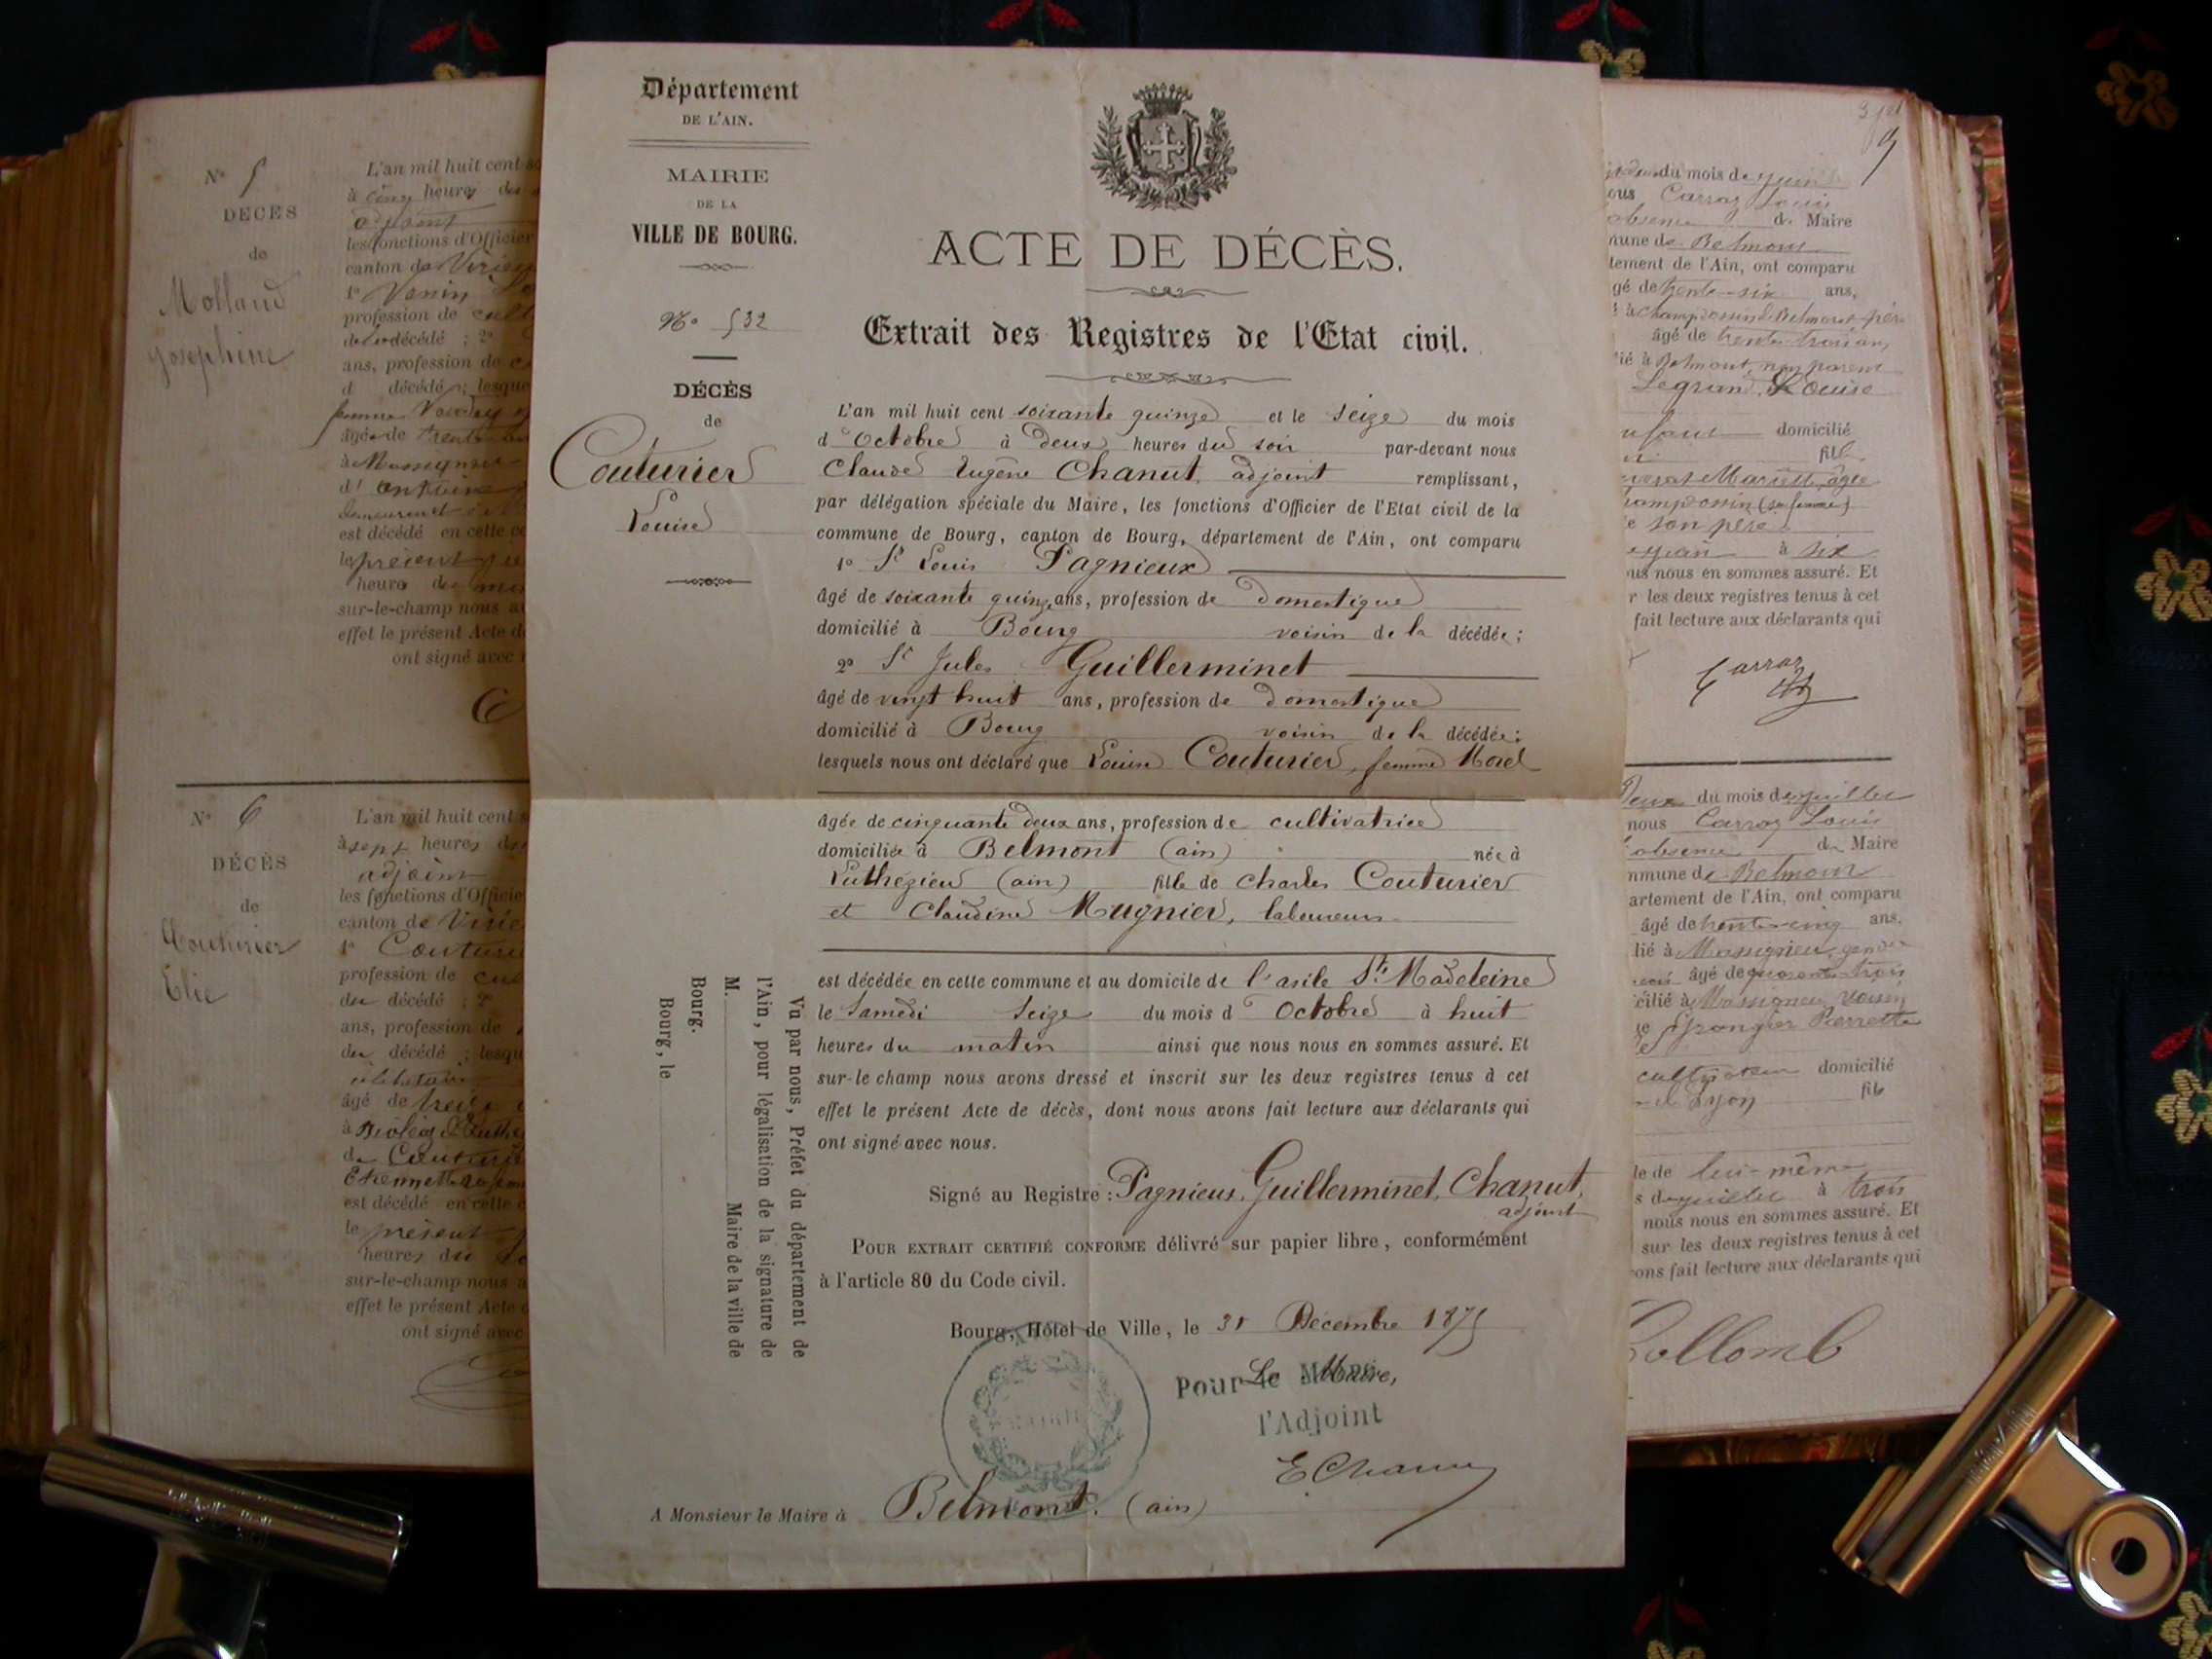 Département
DE L'AIN.
MAIRIE
DE LA
VILLE DE BOURG.
No 532
DÉCÈS
de
Couturier
Louise
ACTE DE DÉCÈS.
Extrait des Registres de l'Etat civil.
L'an mil huit cent soixante quinze et le seize du mois
d'Octobre à deux heures du soir par-devant nous
Claude Eugène Chanut, adjoint remplissant,
par délégation spéciale du Maire, les fonctions d'Officier de l'Etat civil de la
commune de Bourg, canton de Bourg, département de l'Ain, ont comparu
1o Sr Louis Pagnieux
âgé de soixante quinze ans, profession de Domestique
domicilié à Bourg voisin de la décédée;
2o Sr Jules Guillerminet
âgé de vingt huit ans, profession de Domestique
domicilié à Bourg voisin de la décédée;
lesquels nous ont déclaré que Louise Couturier, femme Morel
âgée de cinquante deux ans, profession de cultivatrice
domiciliée à Belmont (ain) née à
Luthézieu (ain) fille de Charles Couturier
et Claudine Mugnier, laboureurs
est décédée en cette commune et au domicile de l'asile Ste Madeleine
le Samedi Seize du mois d'Octobre à huit
heures du matin ainsi que nous nous en sommes assuré. Et
sur-le champ nous avons dressé et inscrit sur les deux registres tenus à cet
effet le présent Acte de décès, dont nous avons fait lecture aux déclarants qui
ont signé avec nous.
Signé au Registre: Pagnieux, Guillerminet, Chanut,
adjoint
POUR EXTRAIT CERTIFIÉ CONFORME délivré sur papier libre, conformément
à l'article 80 du Code civil.
Bourg, Hôtel de Ville, le 31 Décembre 1875
Le Maire,
Pour le Maire,
l'Adjoint
E Chanut
A Monsieur le Maire à Belmont. (ain)
Vu par nous, Préfet du département de
l'Ain, pour légalisation de la signature de
M. Maire de la ville de
Bourg.
Bourg, le
No 5
DÉCÈS
de
Molland
Josephine
L'an mil huit cent
à cinq heures du
adjoint
les fonctions d'Officier
canton de Virieu
profession de
décédé; 2o
ans, profession de
d décédé; lesque
femme
âgée de trente
à Massignieu
d'antoine
est décédé en cette
le présent
heure du
sur-le-champ nous a
effet le présent Acte d
ont signé avec
No 6
DÉCÈS
de
Couturier
Elie
L'an mil huit cent
à sept heures du
adjoint
les fonctions d'Officie
canton de Virie
1o Couturi
profession de
du décédé; 2o
ans, profession de
du décédé; lesqu
célibataire
âgé de
de Couturie
est décédé en cette
le présent
heures du
sur-le-champ nous a
effet le présent Acte d
ont signé avec
du mois de juin
ous Carraz Louis
absence du Maire
mune de Belmont
tement de l'Ain, ont comparu
gé de trente-six ans,
âgé de trente-trois ans,
ié à Belmont, non parent
Legrand Louise
domicilié
fill
e son père
à six
us nous en sommes assuré. Et
r les deux registres tenus à cet
fait lecture aux déclarants qui
Carraz
deux du mois de juillet
nous Carraz Louis
absence du Maire
nmune de Belmont
artement de l'Ain, ont comparu
âgé de trente-cinq ans.
lié à Massignieu
âgé de quarante-trois
cilié à Massignieu, voisin
Pierrette
cultivateur domicilié
Lyon fils
le de lui-même
s de juillet à trois
nous nous en sommes assuré. Et
sur les deux registres tenus à cet
ons fait lecture aux déclarants qui
Collomb